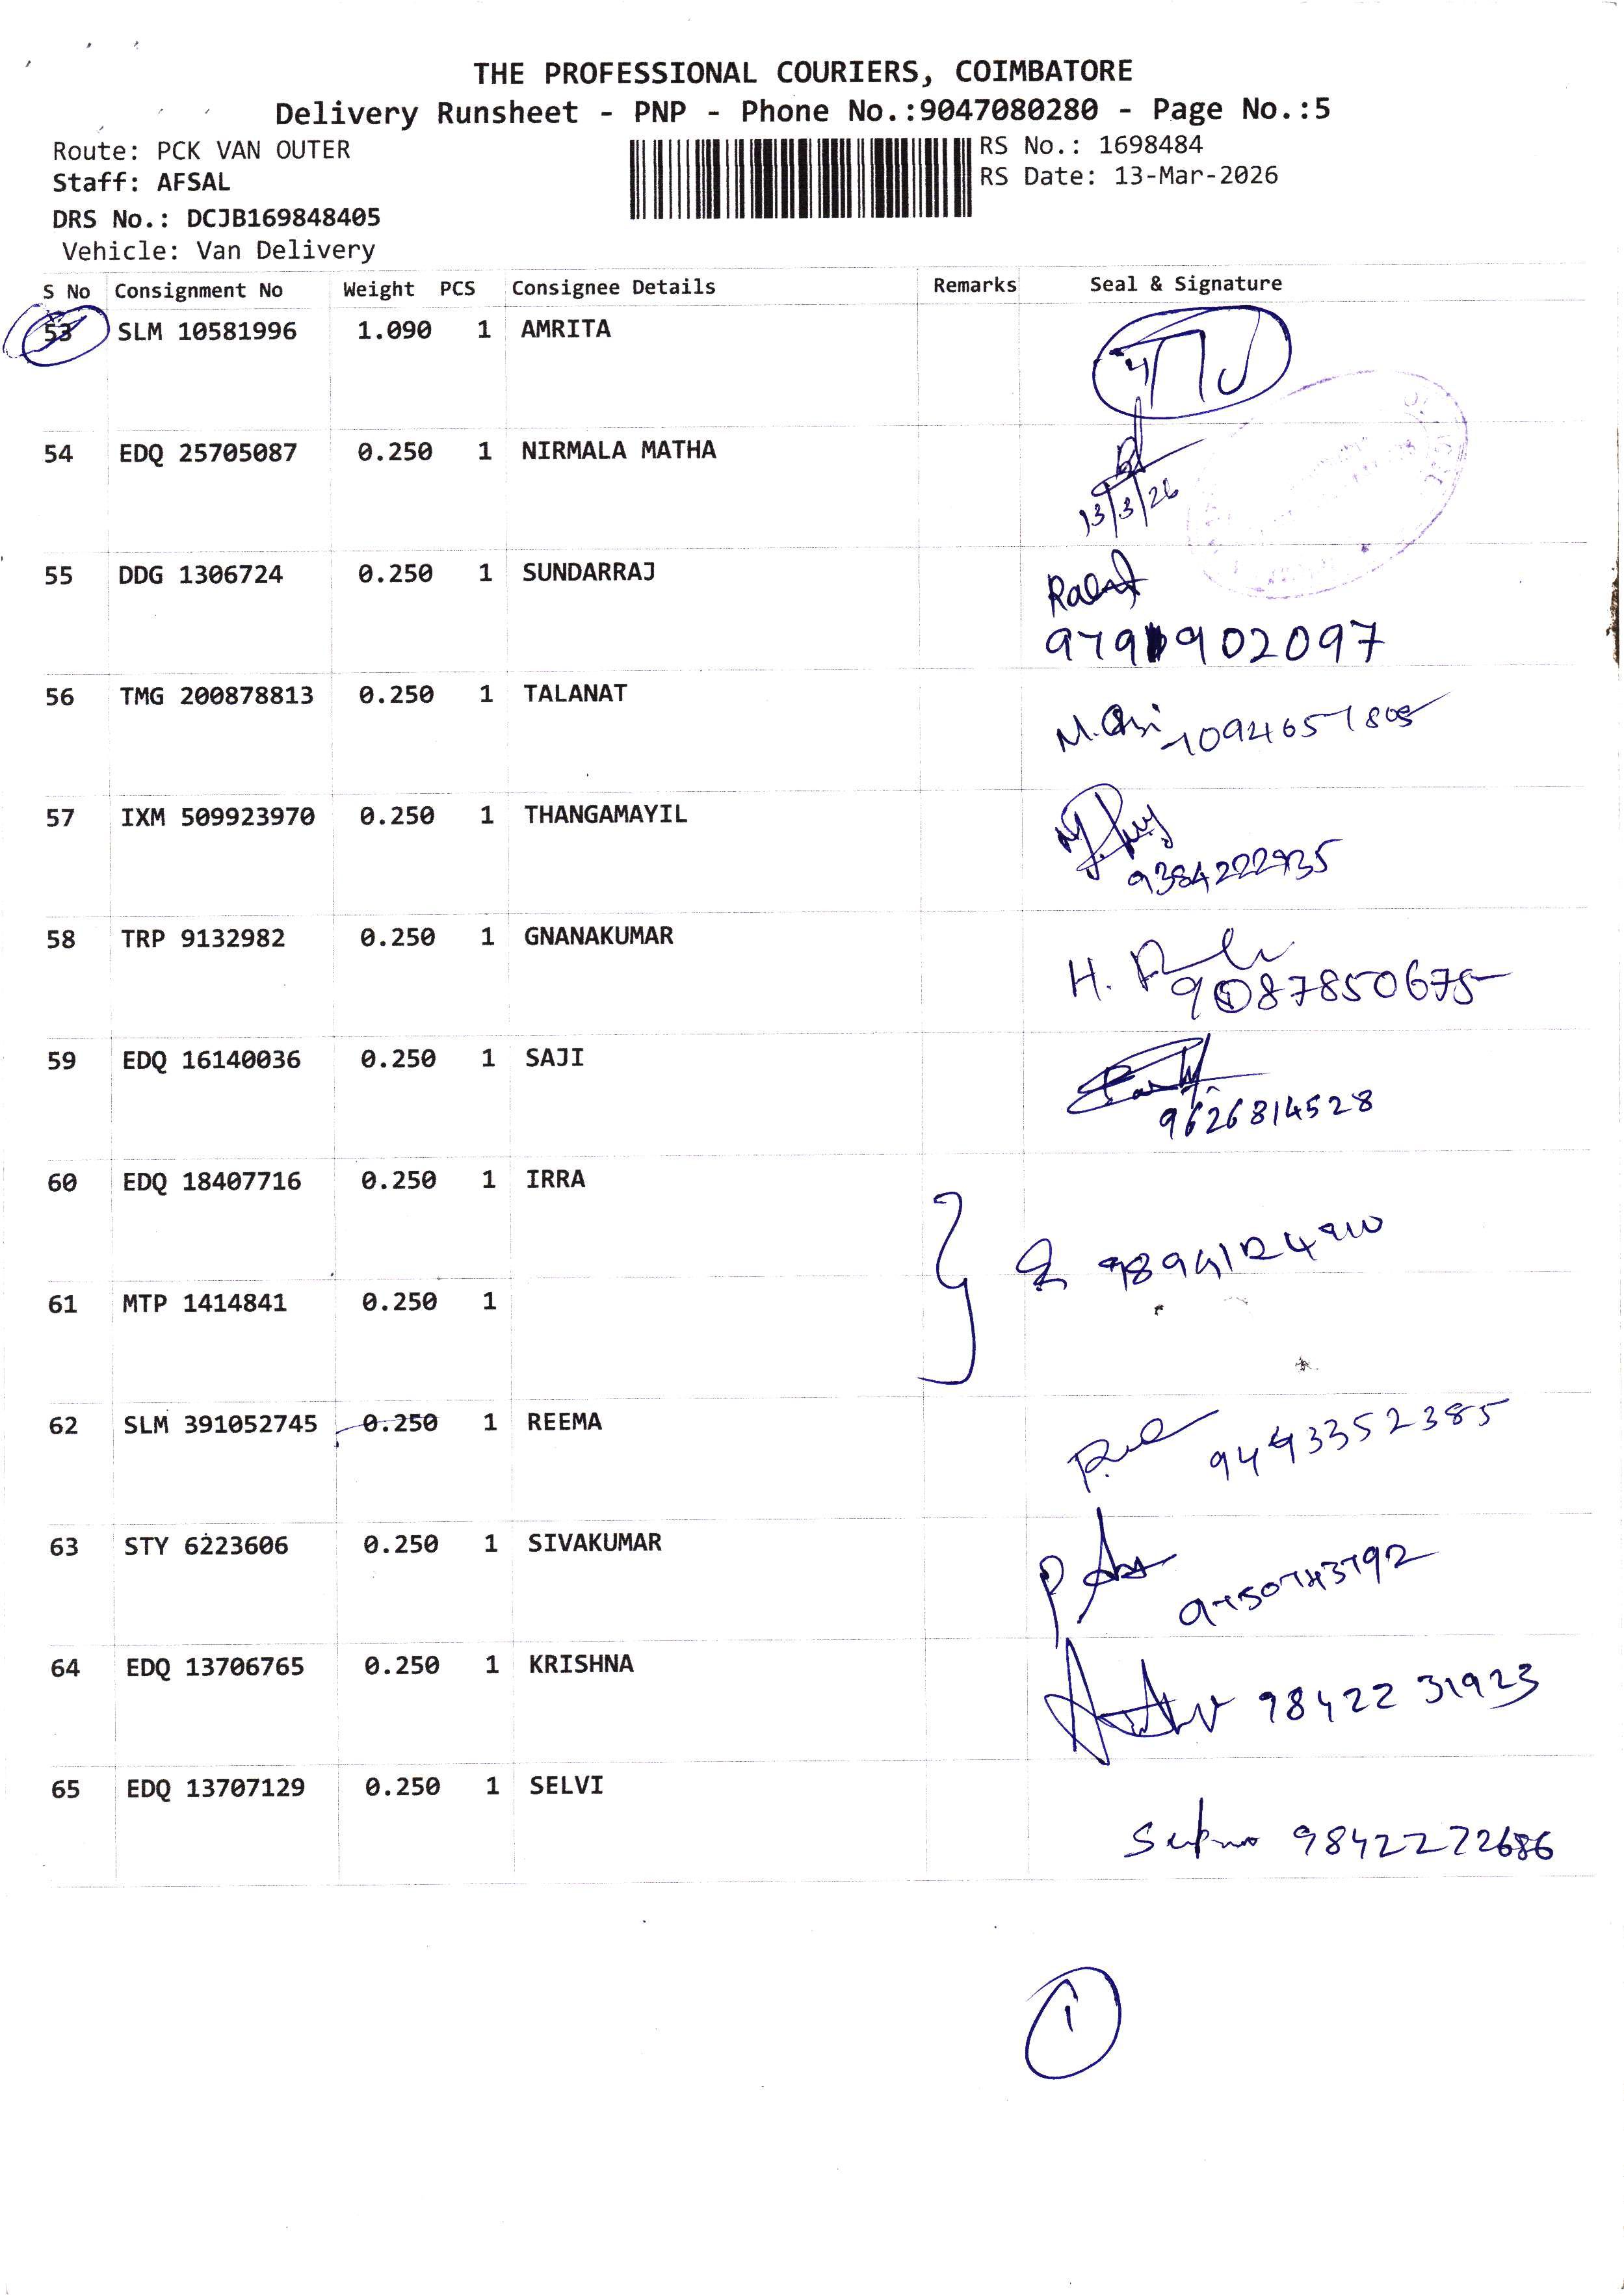 THE PROFESSIONAL COURIERS, COIMBATORE
Delivery Runsheet - PNP - Phone No.:9047080280 - Page No.:5
Route: PCK VAN OUTER
RS No.: 1698484
Staff: AFSAL
RS Date: 13-Mar-2026
DRS No.: DCJB169848405
Vehicle: Van Delivery
S No Consignment No Weight PCS Consignee Details Remarks Seal & Signature
53 SLM 10581996 1.090 1 AMRITA
54 EDQ 25705087 0.250 1 NIRMALA MATHA
13/3/26
55 DDG 1306724 0.250 1 SUNDARRAJ
56 TMG 200878813 0.250 1 TALANAT
57 IXM 509923970 0.250 1 THANGAMAYIL
58 TRP 9132982 0.250 1 GNANAKUMAR
59 EDQ 16140036 0.250 1 SAJI
9626814528
60 EDQ 18407716 0.250 1 IRRA
61 MTP 1414841 0.250 1
62 SLM 391052745 0.250 1 REEMA
9443352385
63 STY 6223606 0.250 1 SIVAKUMAR
64 EDQ 13706765 0.250 1 KRISHNA
98422 31923
65 EDQ 13707129 0.250 1 SELVI
9842272686
1